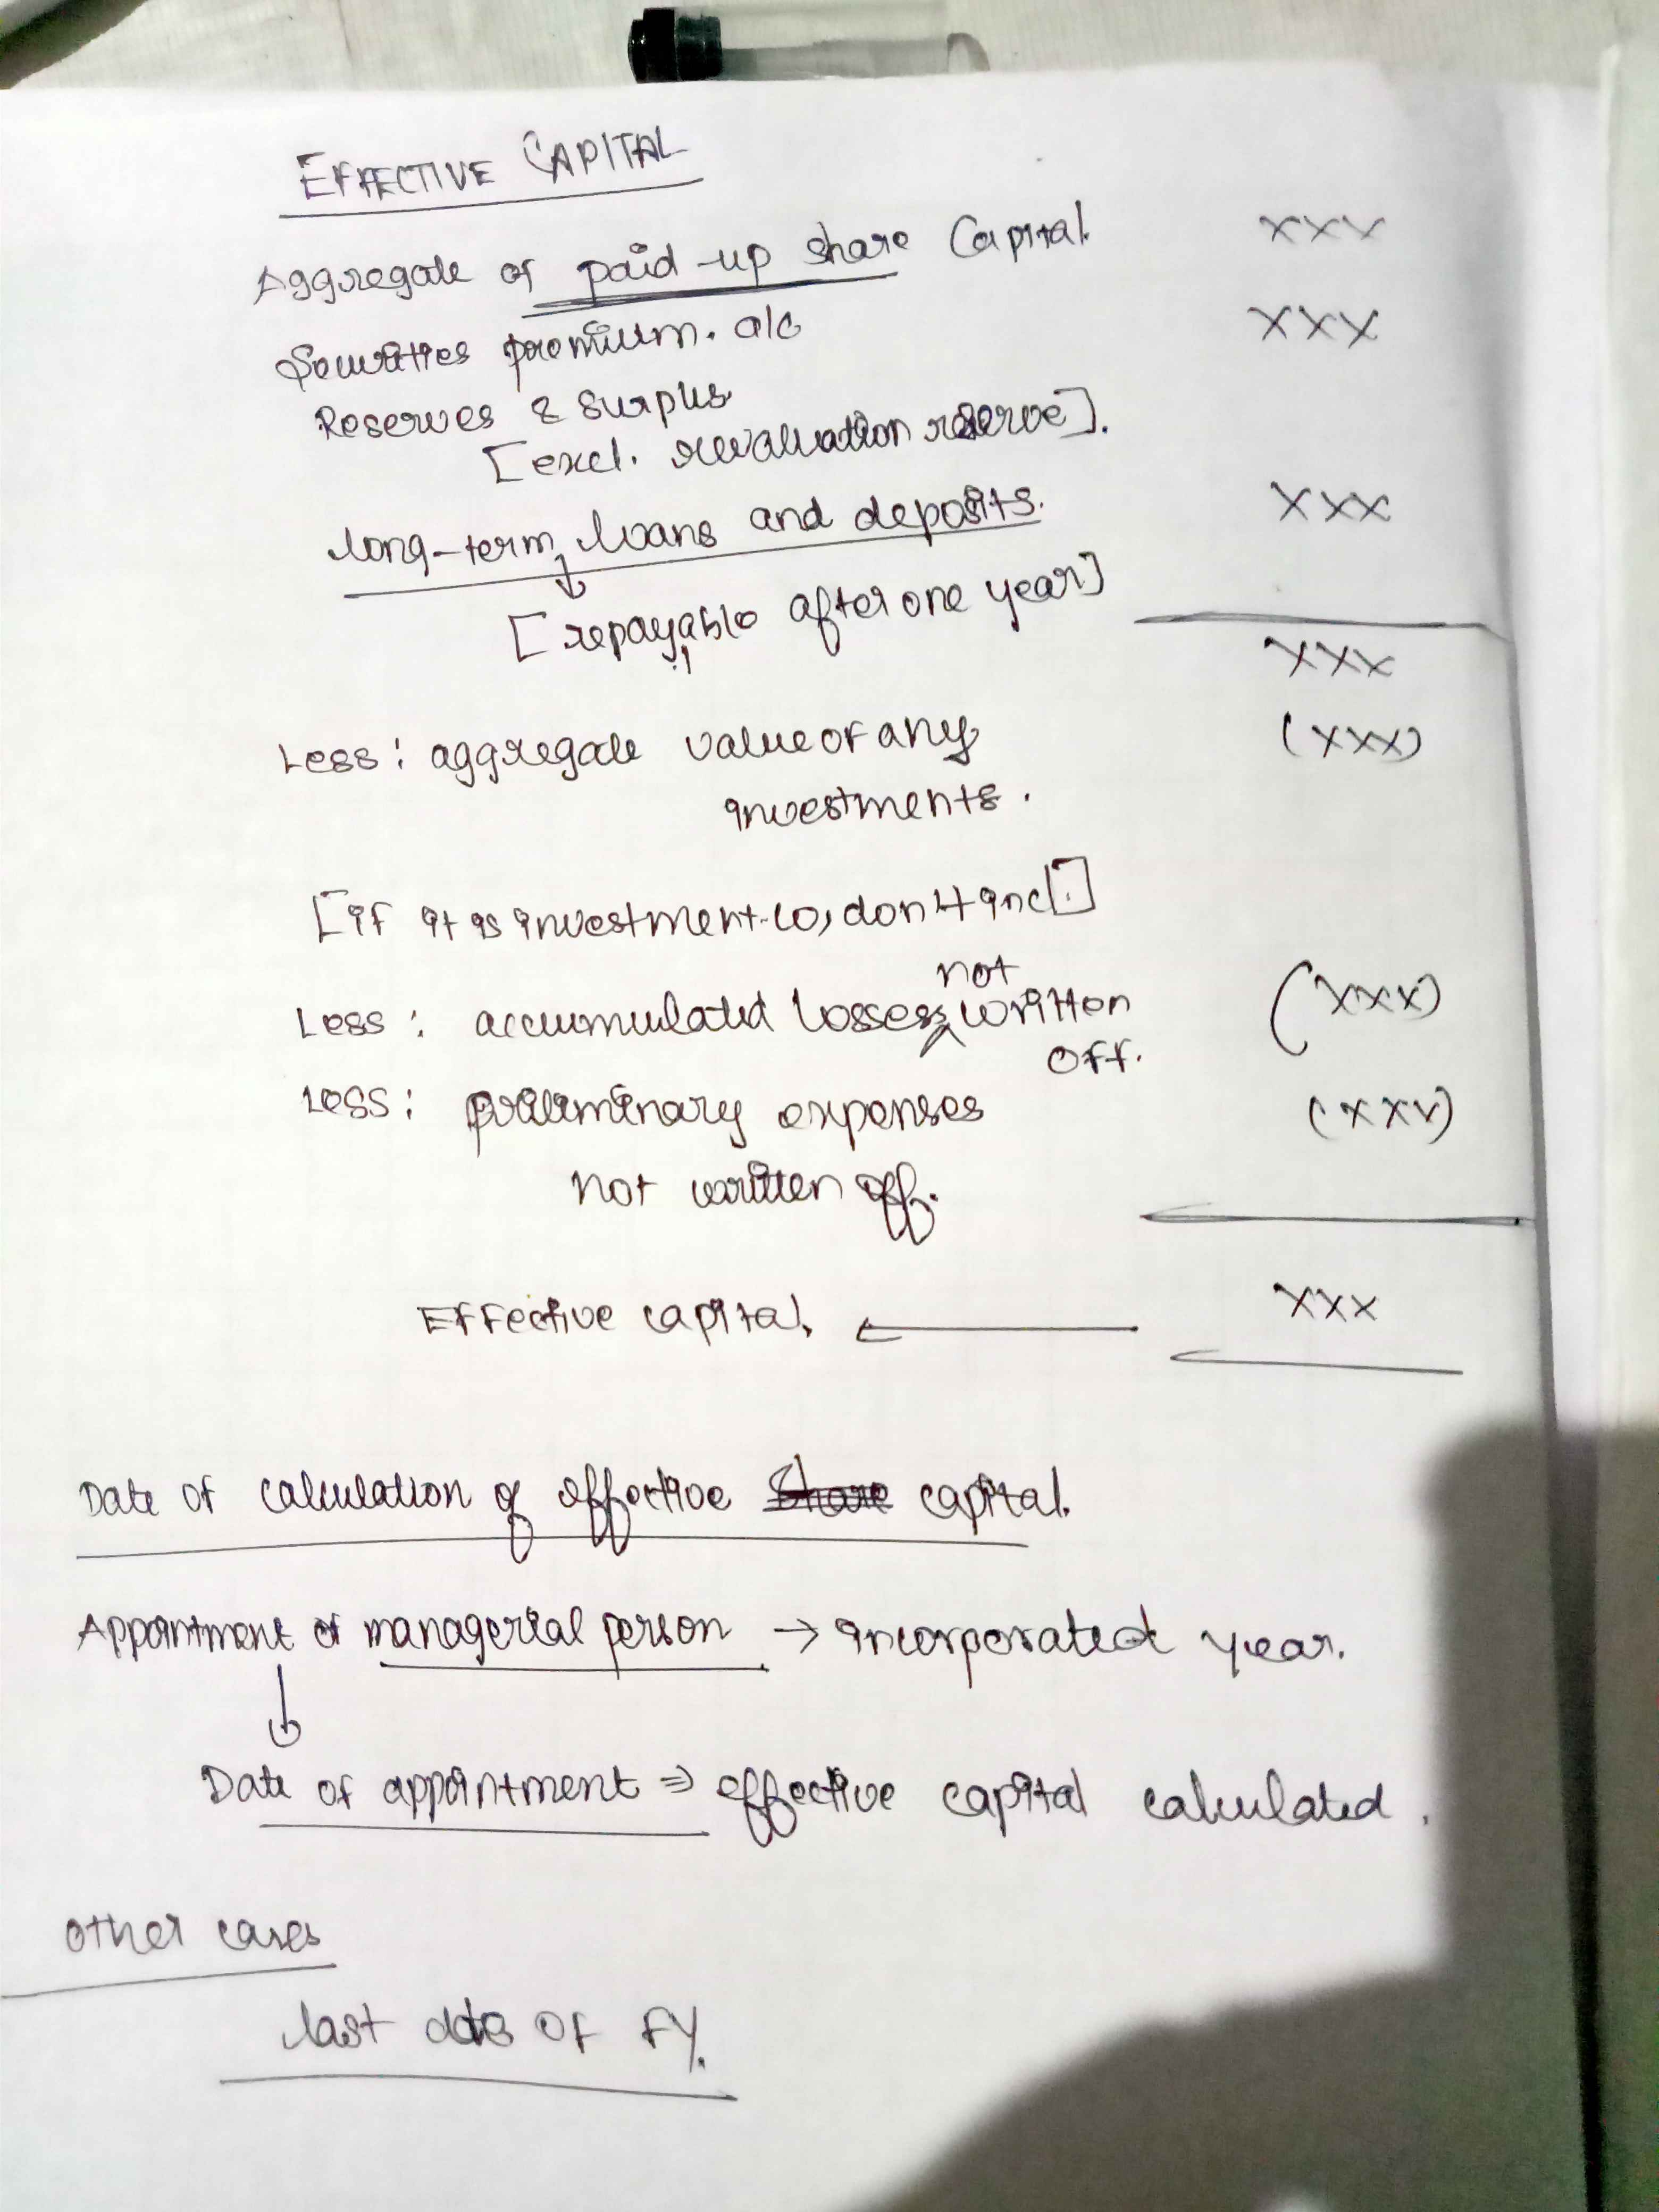 EFFECTIVE CAPITAL
Aggregate of paid-up share Capital. XXX
Securities premium. a/c XXX
Reserves & surplus
[excl. revaluation reserve].
long-term loans and deposits. XXX
[repayable after one year]
XXX
Less: aggregate value of any (XXX)
investments.
[if it is investment-co, don't incl.]
not
Less: accumulated losses written (XXX)
off.
Less: preliminary expenses (XXX)
not written off.
Effective capital. XXX
Date of calculation of effective Share capital.
Appointment of managerial person → incorporated year.
↓
Date of appointment ⇒ effective capital calculated.
other cases
last date of FY.